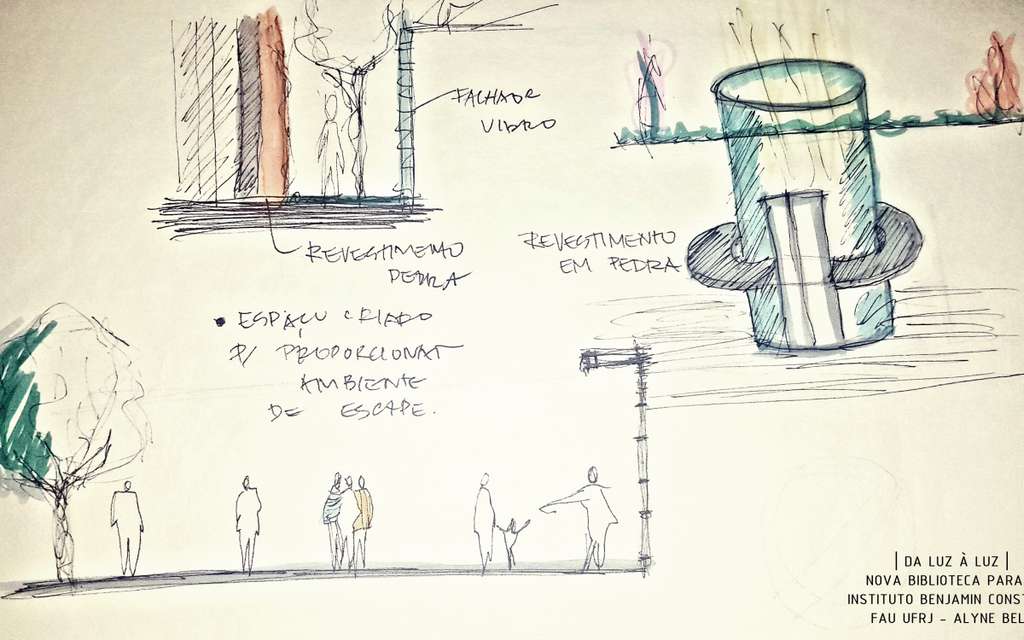 FACHADA
VIDRO
REVESTIMENTO
PEDRA
REVESTIMENTO
EM PEDRA
• ESPAÇO CRIADO
P/ PROPORCIONAR
AMBIENTE
DE ESCAPE.
| DA LUZ À LUZ |
NOVA BIBLIOTECA PARA
INSTITUTO BENJAMIN CONST
FAU UFRJ - ALYNE BEL